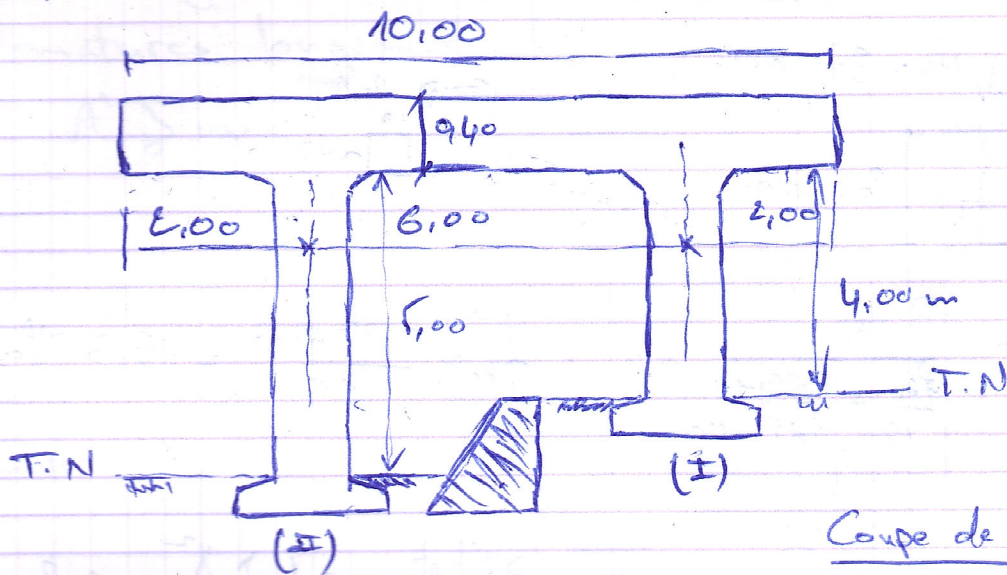 10,00
0,40
2,00 6,00 2,00
5,00
4,00 m
T.N
T.N
(I)
(II)
Coupe de